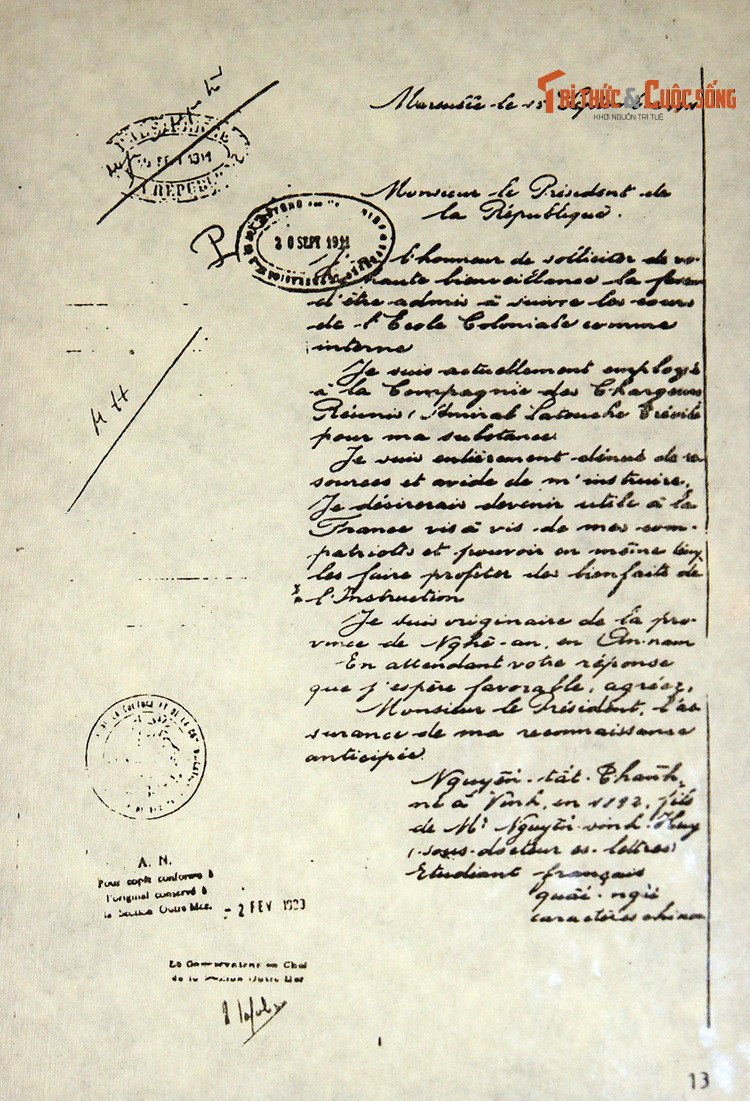 TRI THỨC & CUỘC SỐNG
KHƠI NGUỒN TRI TUỆ
Marseille le 15
Monsieur le Président de
la République.
20 SEPT 1911
l'honneur de solliciter de vo
haute bienveillance la faveur
d'être admis à suivre les cours
de l'Ecole Coloniale comme
interne
Je suis actuellement employé
à la Compagnie des Chargeurs
Réunis (Amiral Latouche Tréville
pour ma substance
Je suis entièrement dénué de res
sources et avide de m'instruire.
Je désirerais devenir utile à la
France vis à vis de mes com-
patriotes et pouvoir en même temps
les faire profiter des bienfaits de
l'Instruction
Je suis originaire de la pro-
vince de Nghê-an, en An-nam
En attendant votre réponse
que j'espère favorable, agréez,
Monsieur le Président, l'as
surance de ma reconnaissance
anticipée.
Nguyễn-tất-Thành
né à Vinh, en 1892, fils
de Mr Nguyễn-sinh-Huy
(sous-docteur ès-lettres
Etudiant français
quốc-ngữ
caractères chinois
A. N.
Pour copie conforme à
l'original conservé à
la Section Outre Mer.
- 2 FEV
Le Conservateur en Chef
de la Section Outre Mer
13